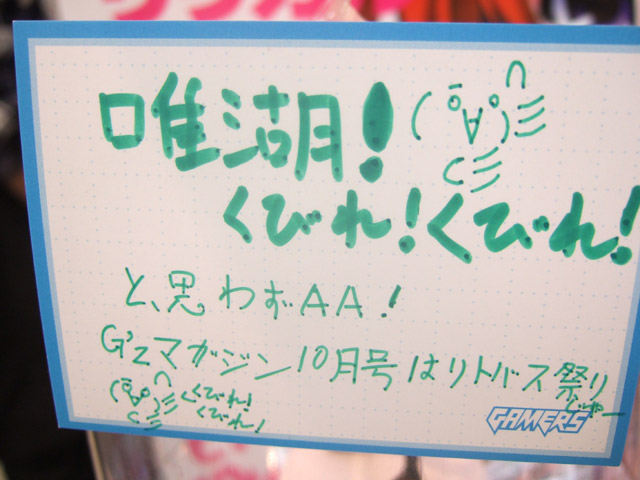 唯湖!
くびれ!くびれ!
と、思わずAA!
G'zマガジン10月号はリトバス祭り
じゃー
くびれ!
くびれ!
GAMERS